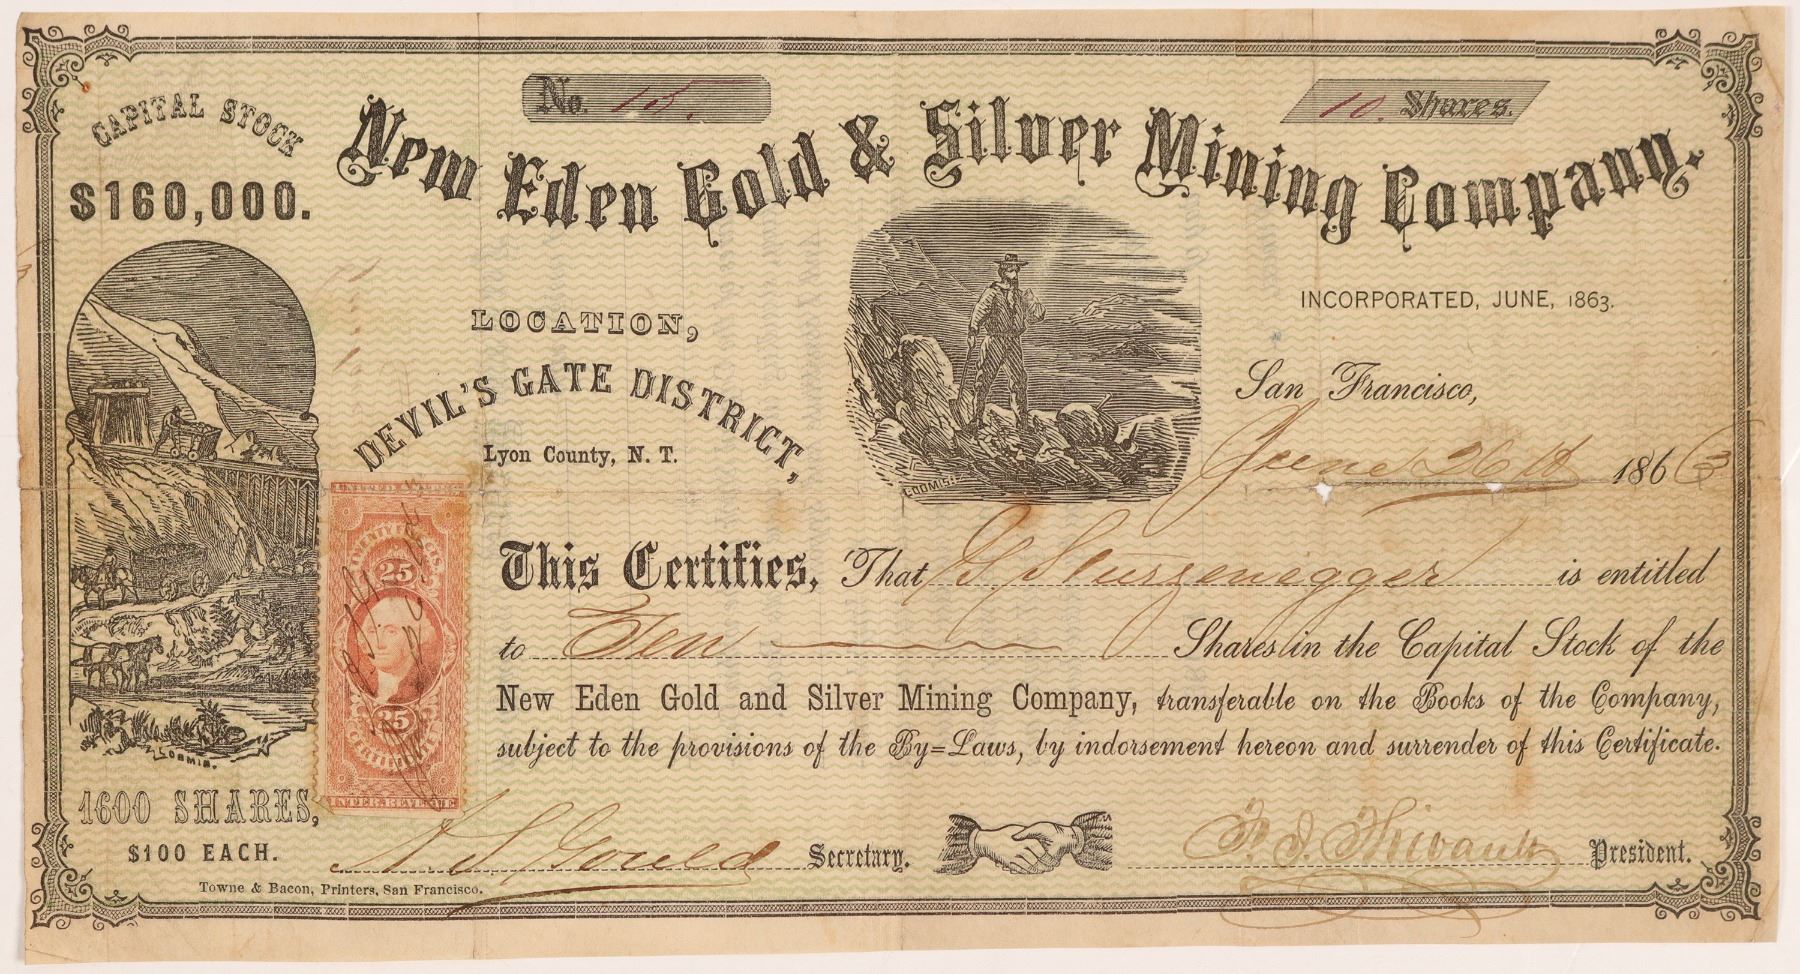 No. 15.
10. Shares.
CAPITAL STOCK
$160,000.
New Eden Gold & Silver Mining Company.
INCORPORATED, JUNE, 1863.
LOCATION,
DEVIL'S GATE DISTRICT,
Lyon County, N. T.
San Francisco,
June 26th 1863
LOOMIS.
UNITED STATES
25
25
CERTIFICATE
INTER. REVENUE
This Certifies, That G. Sturzenegger is entitled
to Ten Shares in the Capital Stock of the
New Eden Gold and Silver Mining Company, transferable on the Books of the Company,
subject to the provisions of the By=Laws, by indorsement hereon and surrender of this Certificate.
LOOMIS.
1600 SHARES,
$100 EACH.
Gould Secretary.
Thibault President.
Towne & Bacon, Printers, San Francisco.